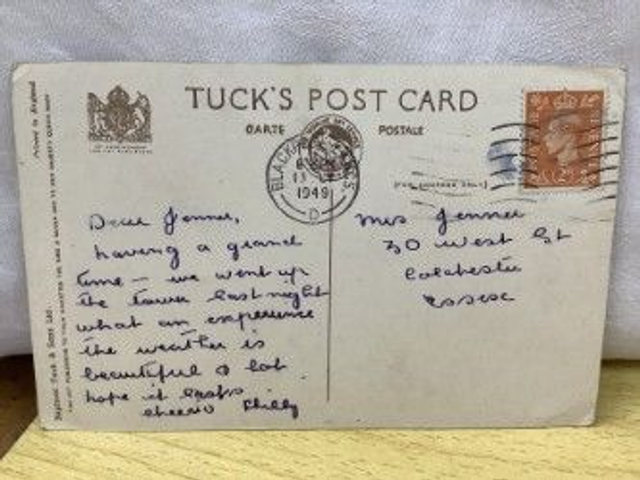 TUCK'S POST CARD
CARTE POSTALE
Printed in England
Raphael Tuck & Sons Ltd.
1949
D
Dear Jennie,
having a grand
time - we went up
the tower last night
what an experience
the weather is
beautiful & hot
hope it lasts
cheerio
Mrs Jennie
30 West St
Colchester
Essex